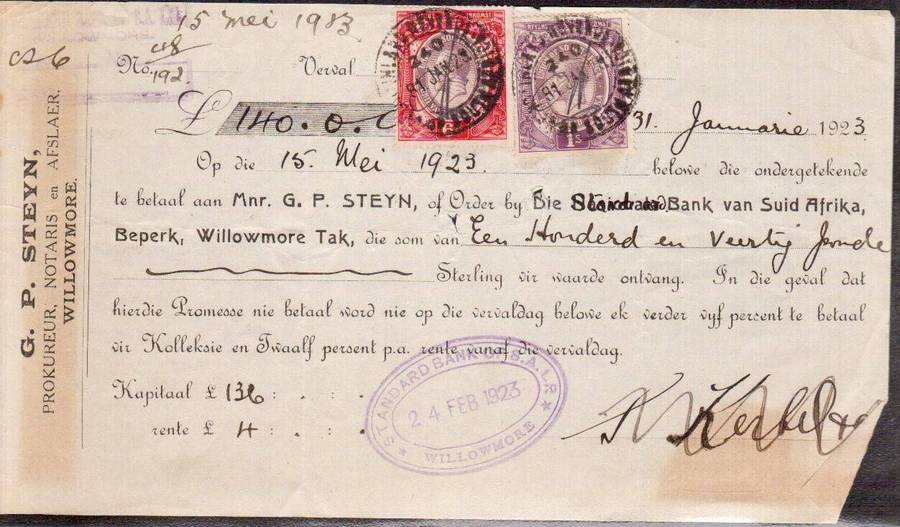 15 Mei 1923
No. 48/192
Verval
CS 6
£ 140. 0. 0
31. Januarie 1923.
Op die 15. Mei 1923. belowe die ondergetekende
te betaal aan Mnr. G. P. STEYN, of Order by Die Standaard Bank van Suid Afrika,
Beperk, Willowmore Tak, die som van Een Honderd en Veertig ponde
Sterling vir waarde ontvang. In die geval dat
hierdie Promesse nie betaal word nie op die vervaldag belowe ek verder vyf persent te betaal
vir Kolleksie en Twaalf persent p.a. rente vanaf die vervaldag.
Kapitaal £ 136 : . :
rente £ 4 : . :
G. P. STEYN,
PROKUREUR, NOTARIS en AFSLAER,
WILLOWMORE.
STANDARD BANK OF S.A. LD
24 FEB 1923
WILLOWMORE
1s